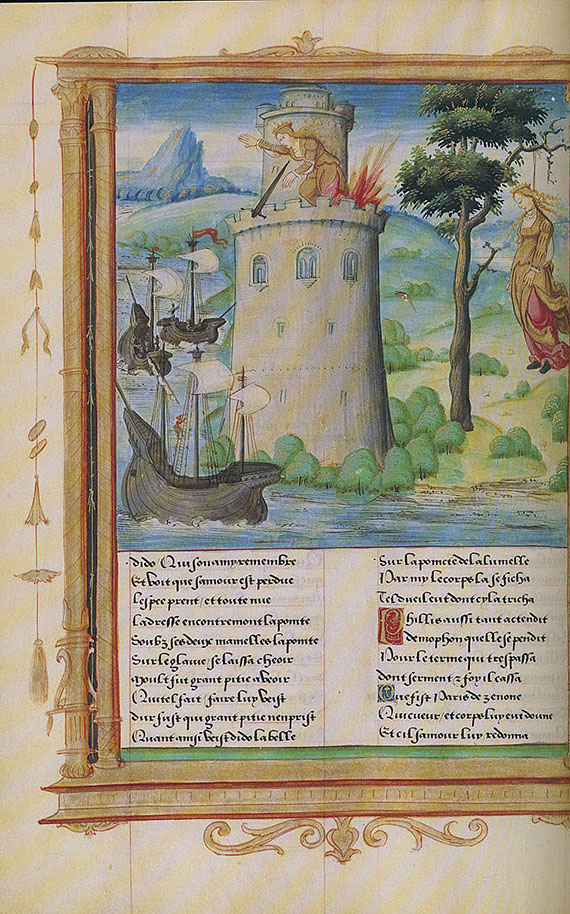 dido Qui son amy remembre
Et voit que samour est perdue
Lespee prent / et toute nue
Ladresse encontremont la poincte
Soubz ses deux mamelles la poincte
Sur le glaive se laissa cheoir
Moult fut grant pitie a veoir
Qui tel fait faire luy veist
dur fust qui grant pitie nen prist
Quant ainsi veist dido la belle
Sur la poincte de la lumelle
Parmy le corps la se ficha
Tel dueil eut dont cy la tricha
Phillis aussi tant actendit
demophon quelle se pendit
Pour le terme qui trespassa
dont serment & foy il cassa
Que fist Paris de zenone
Qui cueur / et corps luy eut donne
Et cil samour luy redonna